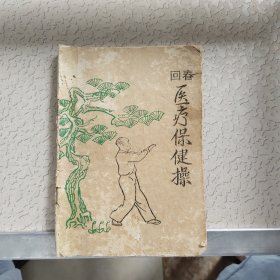 回春
医疗保健操